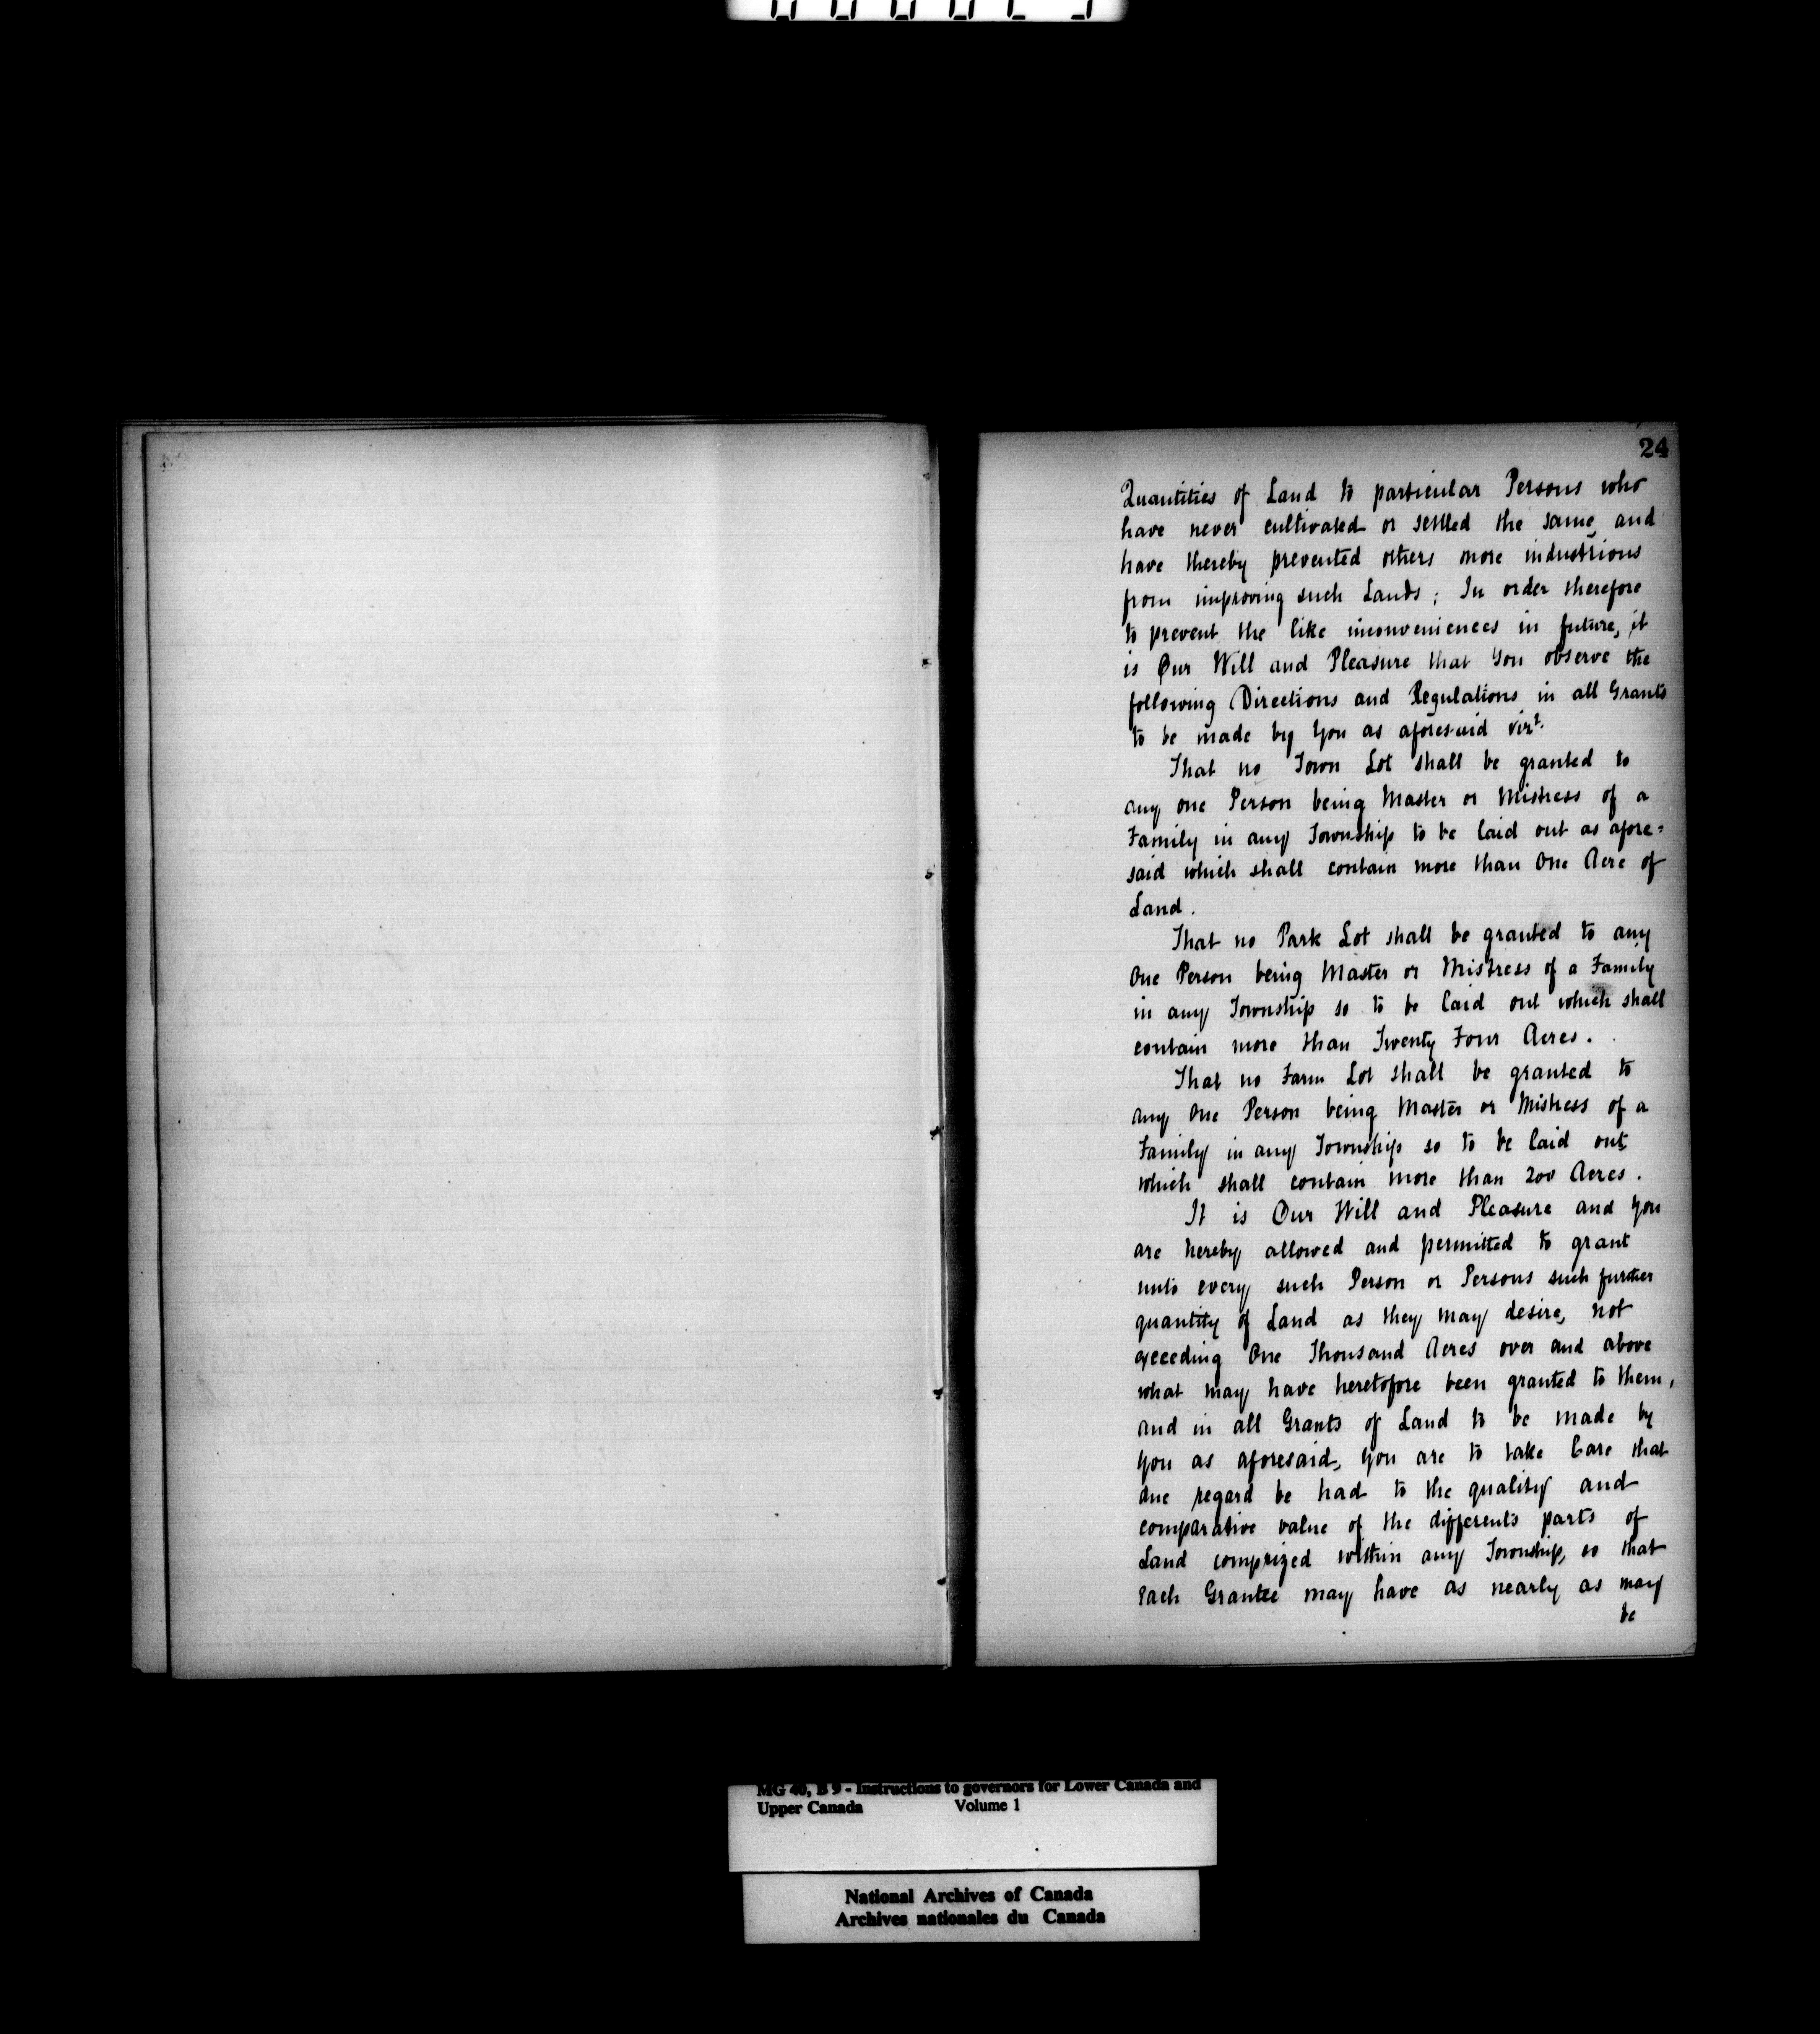 24
Quantities of Land to particular Persons who
have never cultivated or settled the same and
have thereby prevented others more industrious
from improving such Lands; In order therefore
to prevent the like inconveniences in future, it
is Our Will and Pleasure that You observe the
following Directions and Regulations in all Grants
to be made by You as aforesaid vizt.
That no Town Lot shall be granted to
any one Person being Master or Mistress of a
Family in any Township to be laid out as afore=
said which shall contain more than One Acre of
Land.
That no Park Lot shall be granted to any
One Person being Master or Mistress of a Family
in any Township so to be laid out which shall
contain more than Twenty Four Acres.
That no Farm Lot shall be granted to
any One Person being Master or Mistress of a
Family in any Township so to be laid out
which shall contain more than 200 Acres.
It is Our Will and Pleasure and You
are hereby allowed and permitted to grant
unto every such Person or Persons such further
quantity of Land as they may desire, not
exceeding One Thousand Acres over and above
what may have heretofore been granted to them,
and in all Grants of Land to be made by
you as aforesaid, you are to take Care that
due regard be had to the quality and
comparative value of the differents parts of
Land comprized within any Township, so that
each Grantee may have as nearly as may
be
MG 40, B 9 - Instructions to governors for Lower Canada and
Upper Canada Volume 1
National Archives of Canada
Archives nationales du Canada